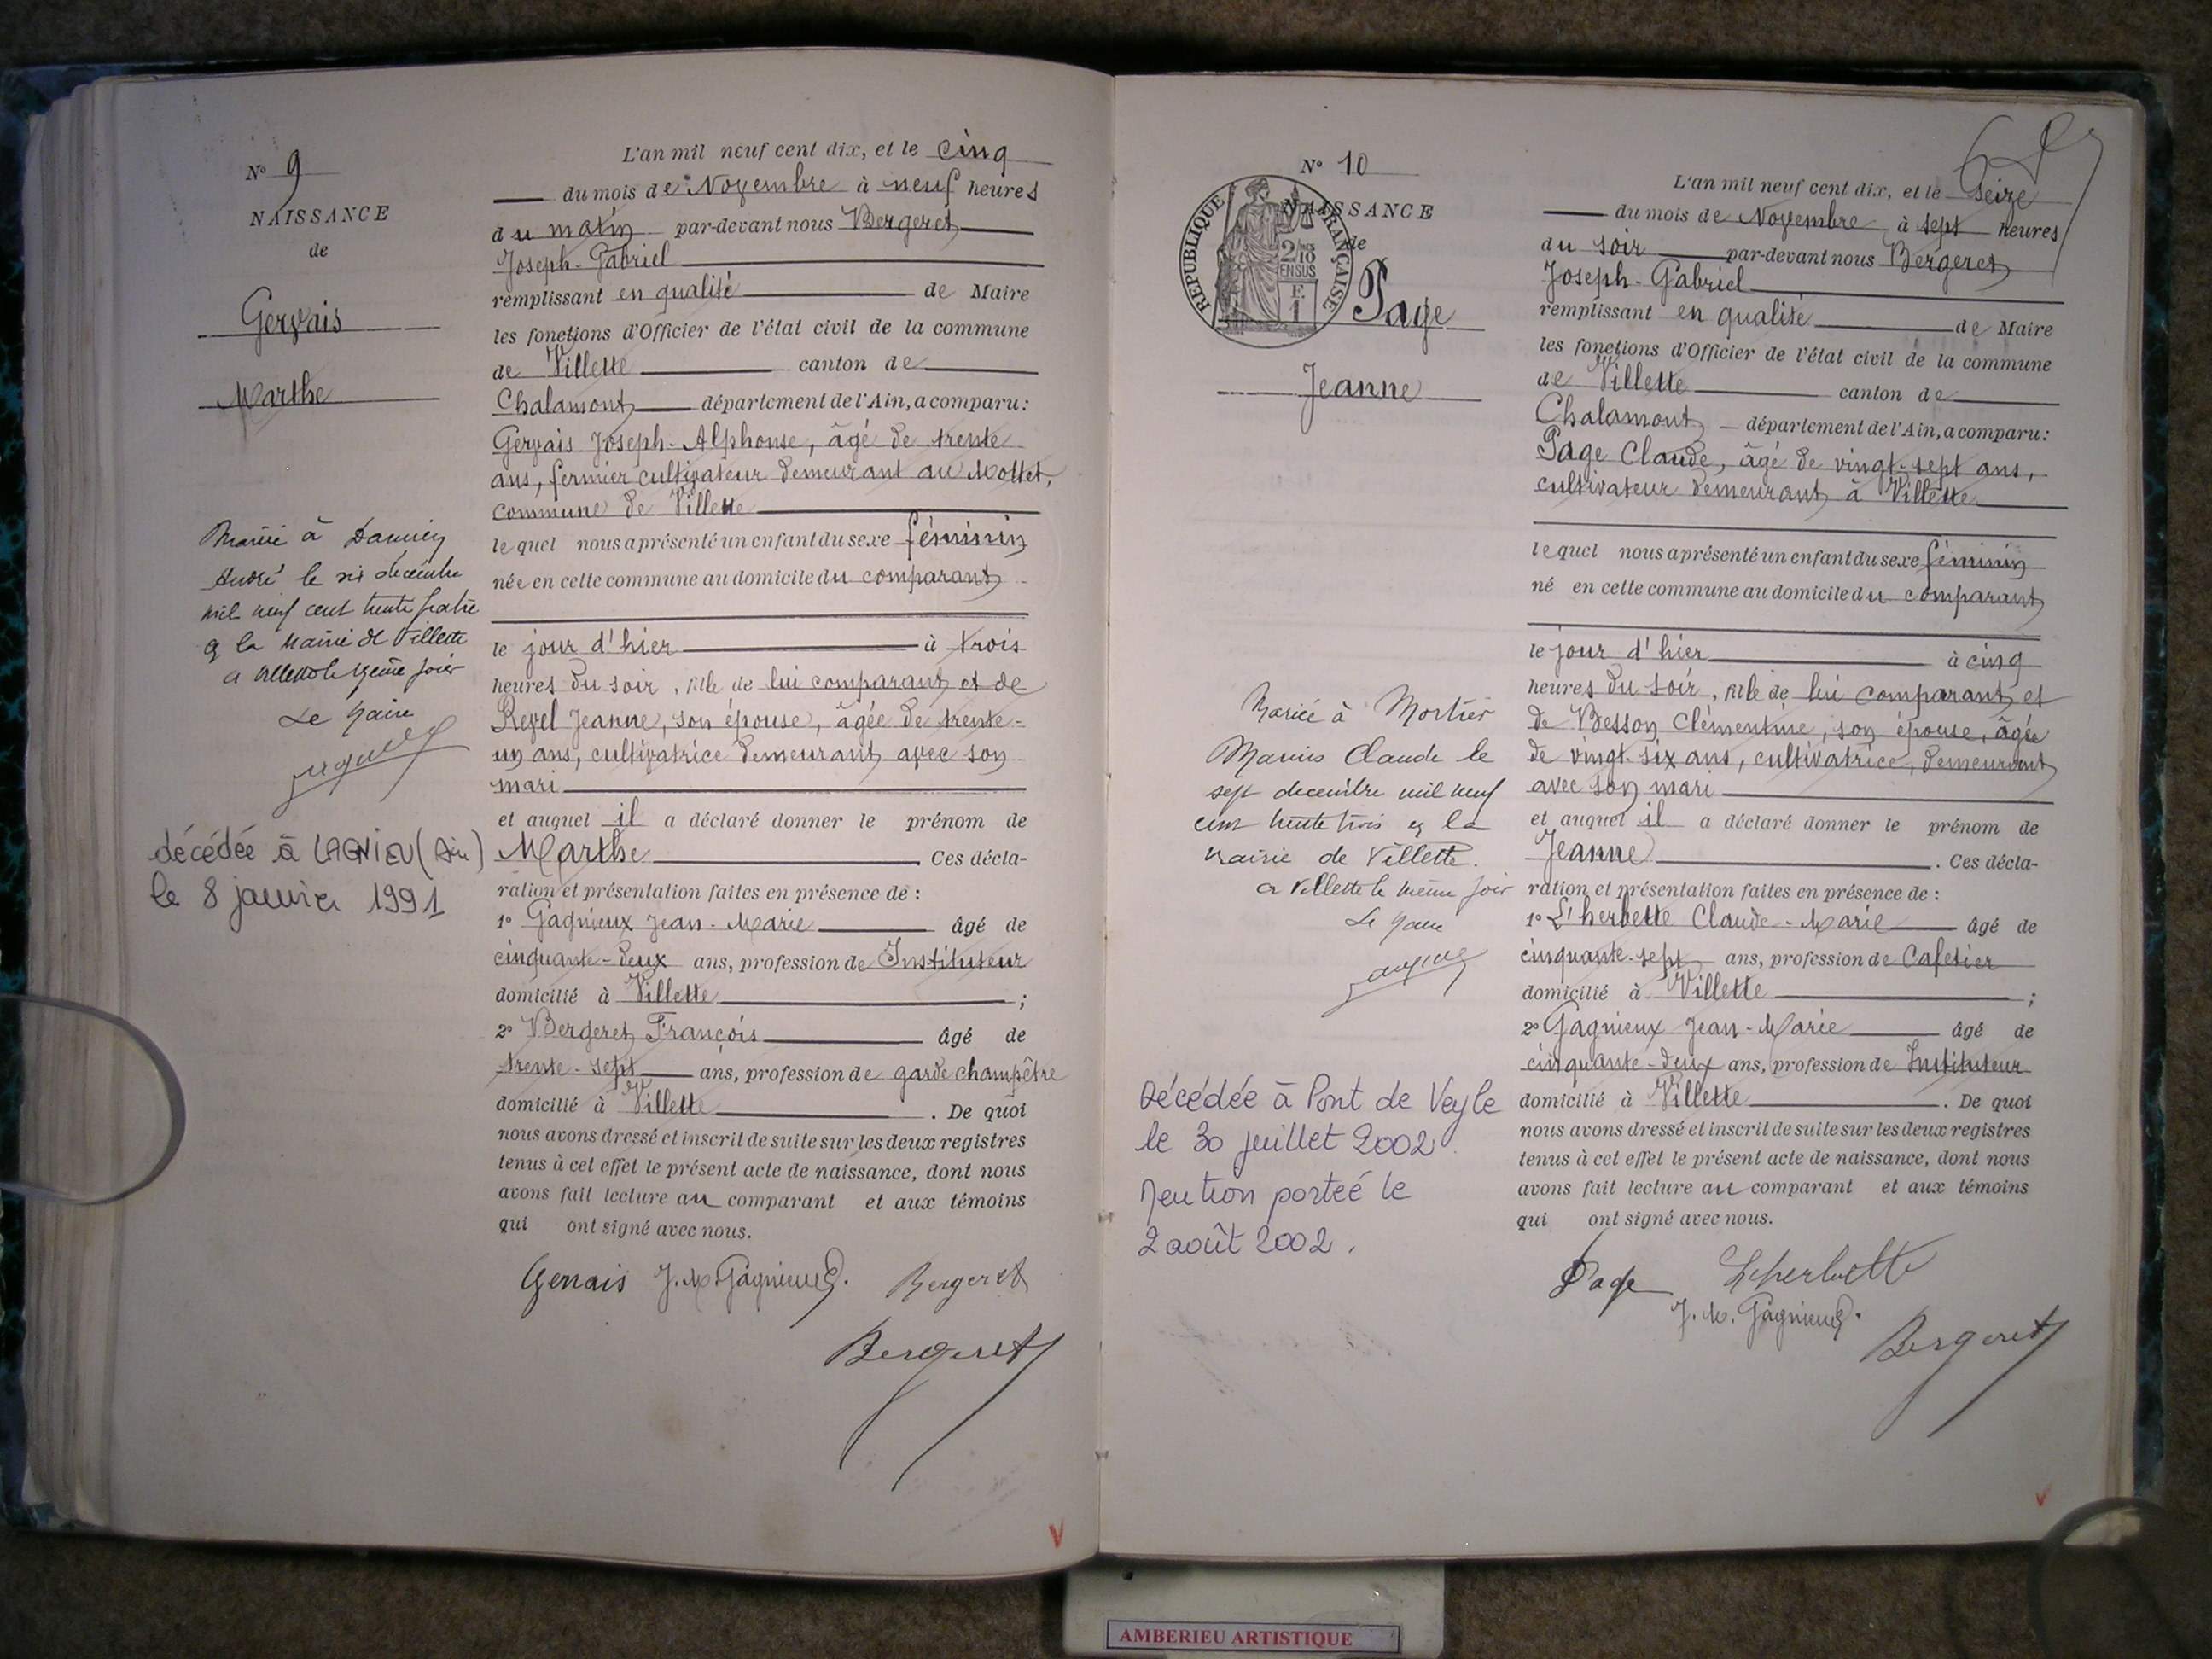 N° 9
NAISSANCE
de
Gervais
Marthe
Mariée à
André le six décembre
mil neuf cent trente quatre
à la mairie de Villette
a Villette le même jour
Le Maire
décédée à LAGNIEU (Ain)
le 8 janvier 1991
L'an mil neuf cent dix, et le cinq
du mois de Novembre à neuf heures
du matin par-devant nous Bergeret
Joseph-Gabriel
remplissant en qualité de Maire
les fonctions d'Officier de l'état civil de la commune
de Villette canton de
Chalamont département de l'Ain, a comparu:
Gervais Joseph-Alphonse, âgé de trente
ans, fermier cultivateur demeurant au Mollet,
commune de Villette
lequel nous a présenté un enfant du sexe féminin
née en cette commune au domicile du comparant
le jour d'hier à trois
heures du soir, fille de lui comparant et de
Revel Jeanne, son épouse, âgée de trente-
un ans, cultivatrice demeurant avec son
mari
et auquel il a déclaré donner le prénom de
Marthe. Ces décla-
ration et présentation faites en présence de :
1° Gagnieux Jean-Marie âgé de
cinquante-deux ans, profession de Instituteur
domicilié à Villette ;
2° Bergeret François âgé de
trente-sept ans, profession de garde champêtre
domicilié à Villette. De quoi
nous avons dressé et inscrit de suite sur les deux registres
tenus à cet effet le présent acte de naissance, dont nous
avons fait lecture au comparant et aux témoins
qui ont signé avec nous.
Gervais J. M. Gagnieux. Bergeret
Bergeret
N° 10
NAISSANCE
de
RÉPUBLIQUE FRANÇAISE
2/10
EN SUS
F.
1
Page
Jeanne
Mariée à Mortier
Marius Claude le
sept décembre mil neuf
cent trente trois en la
mairie de Villette.
a Villette le même jour
Le Maire
Décédée à Pont de Veyle
le 30 juillet 2002.
Mention portée le
2 août 2002.
L'an mil neuf cent dix, et le Seize
du mois de Novembre à sept heures
du soir par-devant nous Bergeret
Joseph-Gabriel
remplissant en qualité de Maire
les fonctions d'Officier de l'état civil de la commune
de Villette canton de
Chalamont département de l'Ain, a comparu:
Page Claude, âgé de vingt-sept ans,
cultivateur demeurant à Villette
lequel nous a présenté un enfant du sexe féminin
né en cette commune au domicile du comparant
le jour d'hier à cinq
heures du soir, fille de lui comparant et
de Besson Clémentine, son épouse, âgée
de vingt-six ans, cultivatrice, demeurant
avec son mari
et auquel il a déclaré donner le prénom de
Jeanne. Ces décla-
ration et présentation faites en présence de :
1° L'herbette Claude-Marie âgé de
cinquante-sept ans, profession de Cafetier
domicilié à Villette ;
2° Gagnieux Jean-Marie âgé de
cinquante-deux ans, profession de Instituteur
domicilié à Villette. De quoi
nous avons dressé et inscrit de suite sur les deux registres
tenus à cet effet le présent acte de naissance, dont nous
avons fait lecture au comparant et aux témoins
qui ont signé avec nous.
Page Lherbette
J. M. Gagnieux.
Bergeret
V
V
AMBERIEU ARTISTIQUE